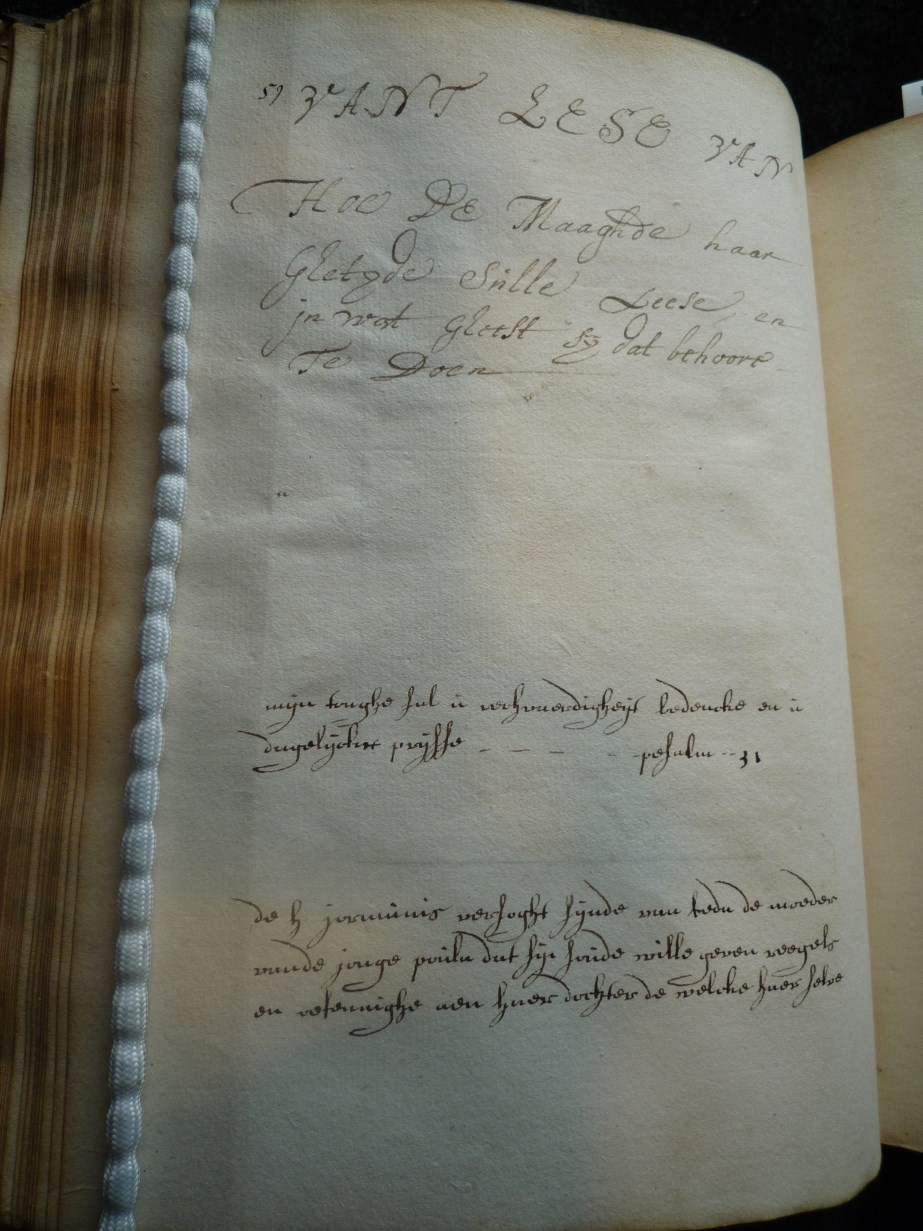 51 VANT LESE VAN
Hoe De Maaghde haar
Gletyde Sulle Leese en
jn wat Gleest sy dat behoore
Te Doen
mijn tonghe sal u rechvaerdigheijt bedencke en u
dagelijckxe prijsse - - - - psealm -- 31
de h jormimis versoght sijnde van leda de moeder
vande jonge paula dat hij soude wille geven reegels
en oefennighe aen haer dochter de welcke haer selve